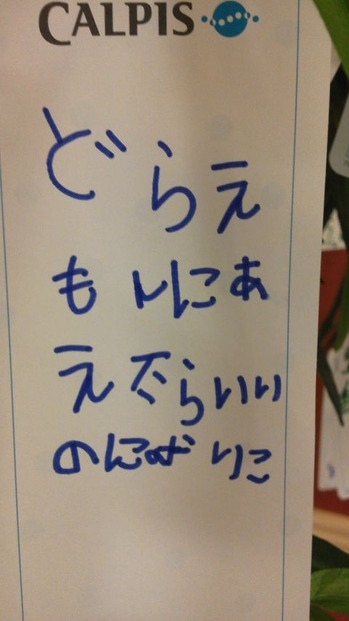 CALPIS
どらえ
もんにあ
えたらいい
のにな りこ